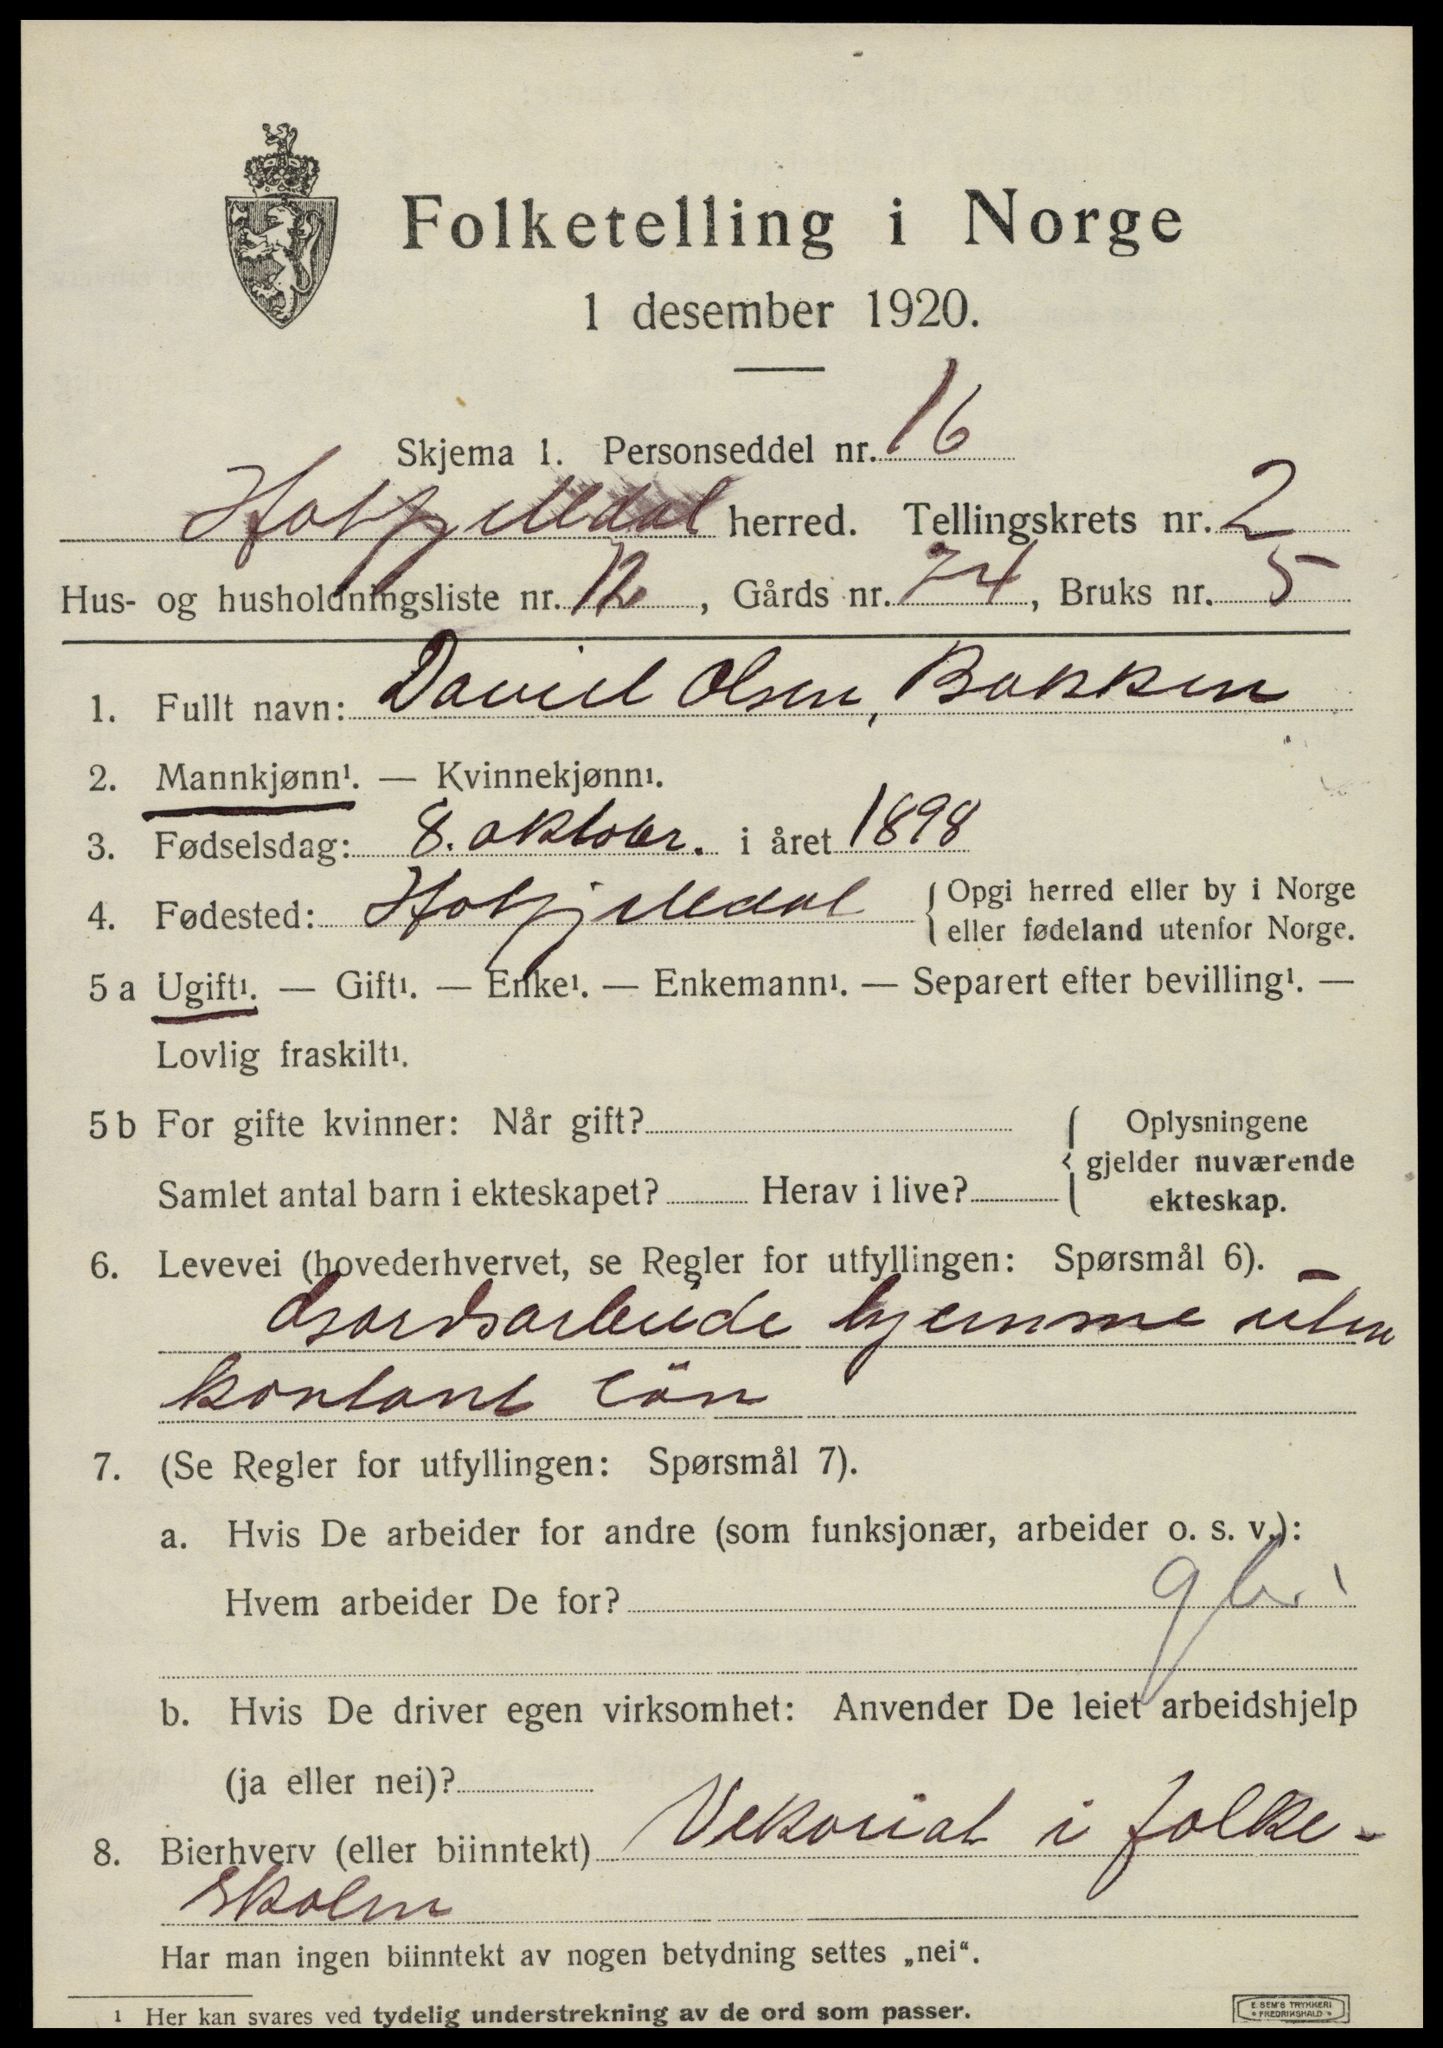 Folketelling i Norge
1 desember 1920.
Skjema 1. Personseddel nr. 16
Hatfjelldal herred. Tellingskrets nr. 2
Hus- og husholdningsliste nr. 12, Gårds nr. 74, Bruks nr. 5
1. Fullt navn: Daniel Olsen, Bakken
2. Mannkjønn¹. — Kvinnekjønn¹.
3. Fødselsdag: 8. oktober. i året 1898
4. Fødested: Hatfjelldal { Opgi herred eller by i Norge
eller fødeland utenfor Norge.
5 a Ugift¹. — Gift¹. — Enke¹. — Enkemann¹. — Separert efter bevilling¹. —
Lovlig fraskilt¹.
5 b For gifte kvinner: Når gift?
Samlet antal barn i ekteskapet? Herav i live?
{ Oplysningene
gjelder nuværende
ekteskap.
6. Levevei (hovederhvervet, se Regler for utfyllingen: Spørsmål 6).
Gaardsarbeide hjemme uten
kontant løn
7. (Se Regler for utfyllingen: Spørsmål 7).
a. Hvis De arbeider for andre (som funksjonær, arbeider o. s. v.):
Hvem arbeider De for?
b. Hvis De driver egen virksomhet: Anvender De leiet arbeidshjelp
(ja eller nei)?
8. Bierhverv (eller biinntekt) Vikariat i folke-
skolen
Har man ingen biinntekt av nogen betydning settes „nei“.
¹ Her kan svares ved tydelig understrekning av de ord som passer.
E. SEM'S TRYKKERI
FREDRIKSHALD